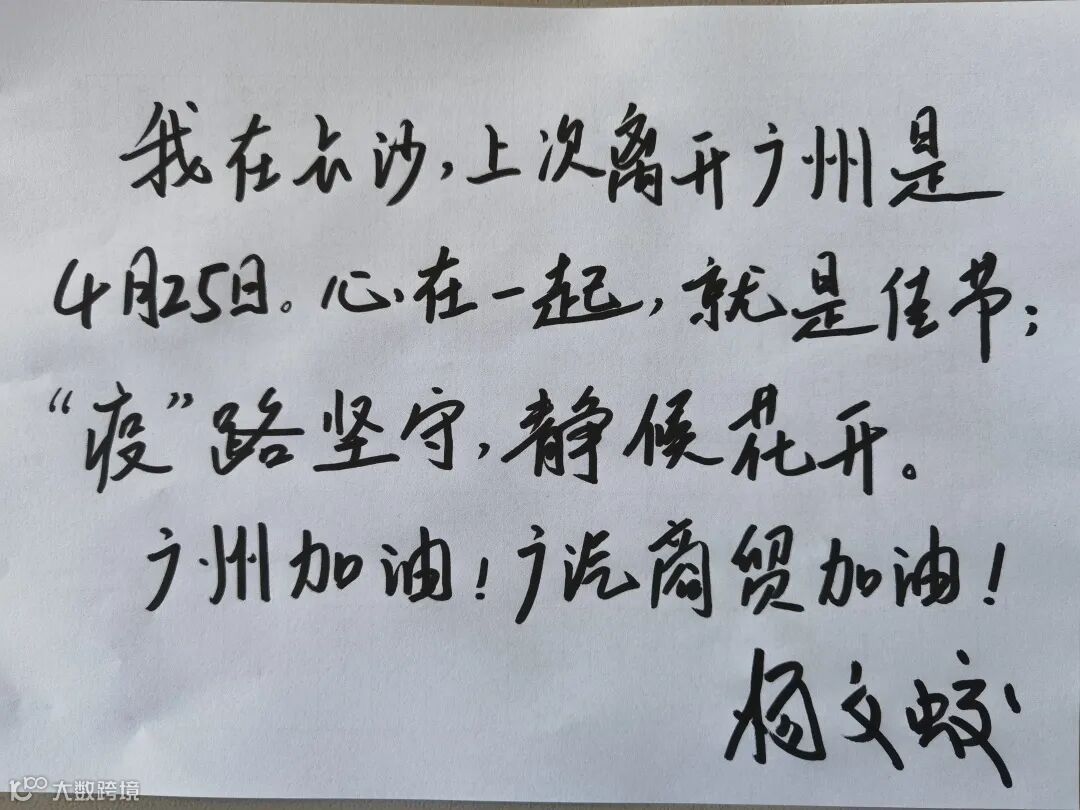 我在长沙，上次离开广州是
4月25日。心在一起，就是佳节；
“疫”路坚守，静候花开。
广州加油！广汽商贸加油！
杨文蛟
大数跨境